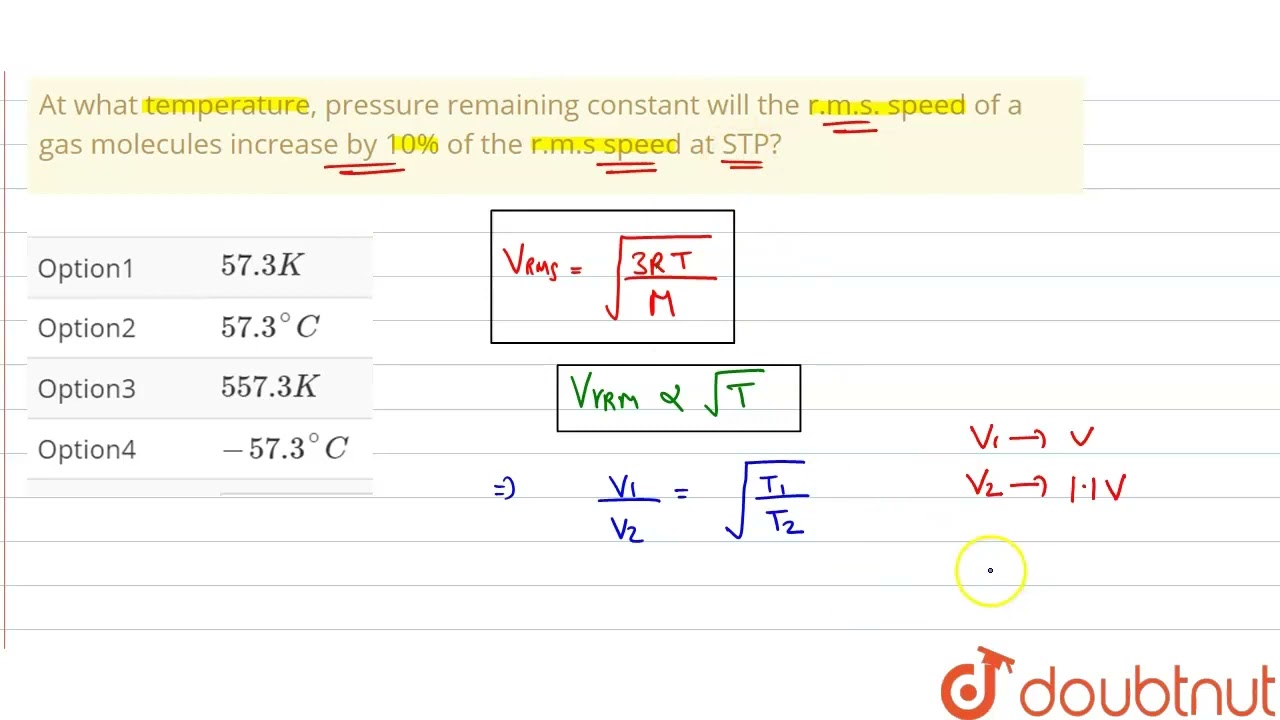 At what temperature, pressure remaining constant will the r.m.s. speed of a
gas molecules increase by 10% of the r.m.s speed at STP?
Option1 57.3K
Option2 57.3°C
Option3 557.3K
Option4 −57.3°C
VRMS = √(3RT/M)
VrRM ∝ √T
⇒ V1/V2 = √(T1/T2)
V1 → V
V2 → 1.1V
doubtnut